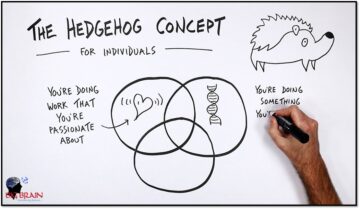 THE HEDGEHOG CONCEPT
FOR INDIVIDUALS
YOU'RE DOING
WORK THAT
YOU'RE
PASSIONATE
ABOUT
YOU'RE DOING
SOMETHING
BRAIN